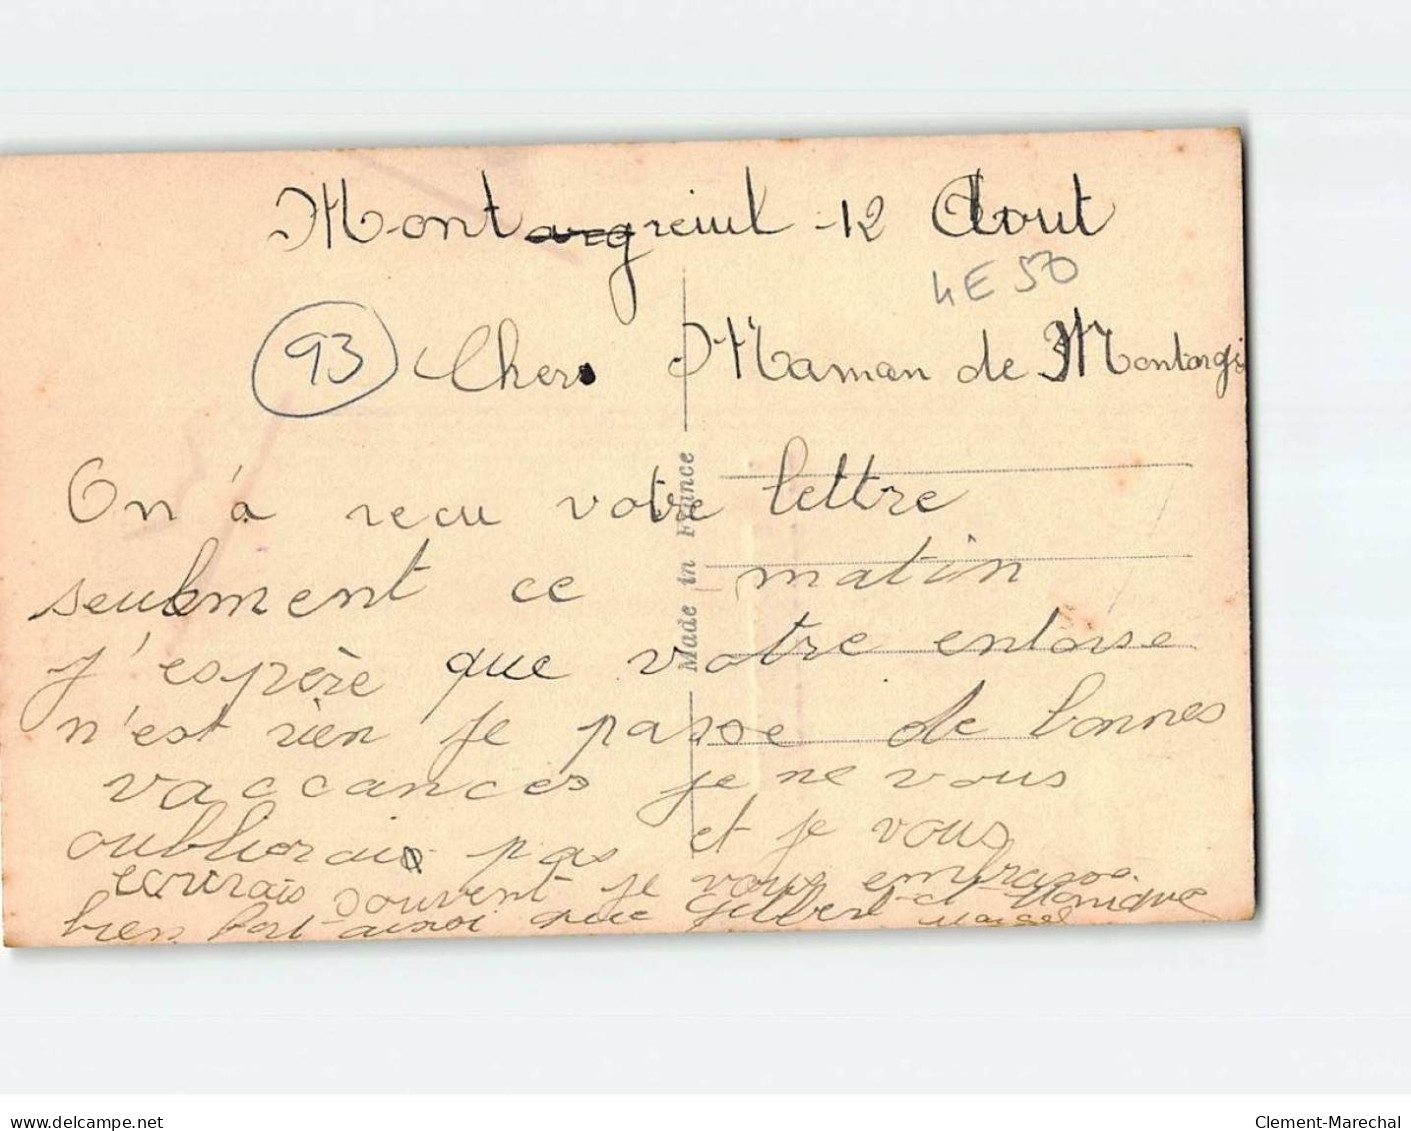 Mont argreiul -12 Aout
4E50
93 Cher Maman de Montargis
On à recu votre lettre
seulement ce matin
j'espère que votre entorse
n'est rien je passe de bonnes
vaccances je ne vous
oublierai pas et je vous
ecrirais souvent je vous embrasse
bien fort ainsi que Gilbert et Monique
Marcel
Made in France
www.delcampe.net
Clement-Marechal